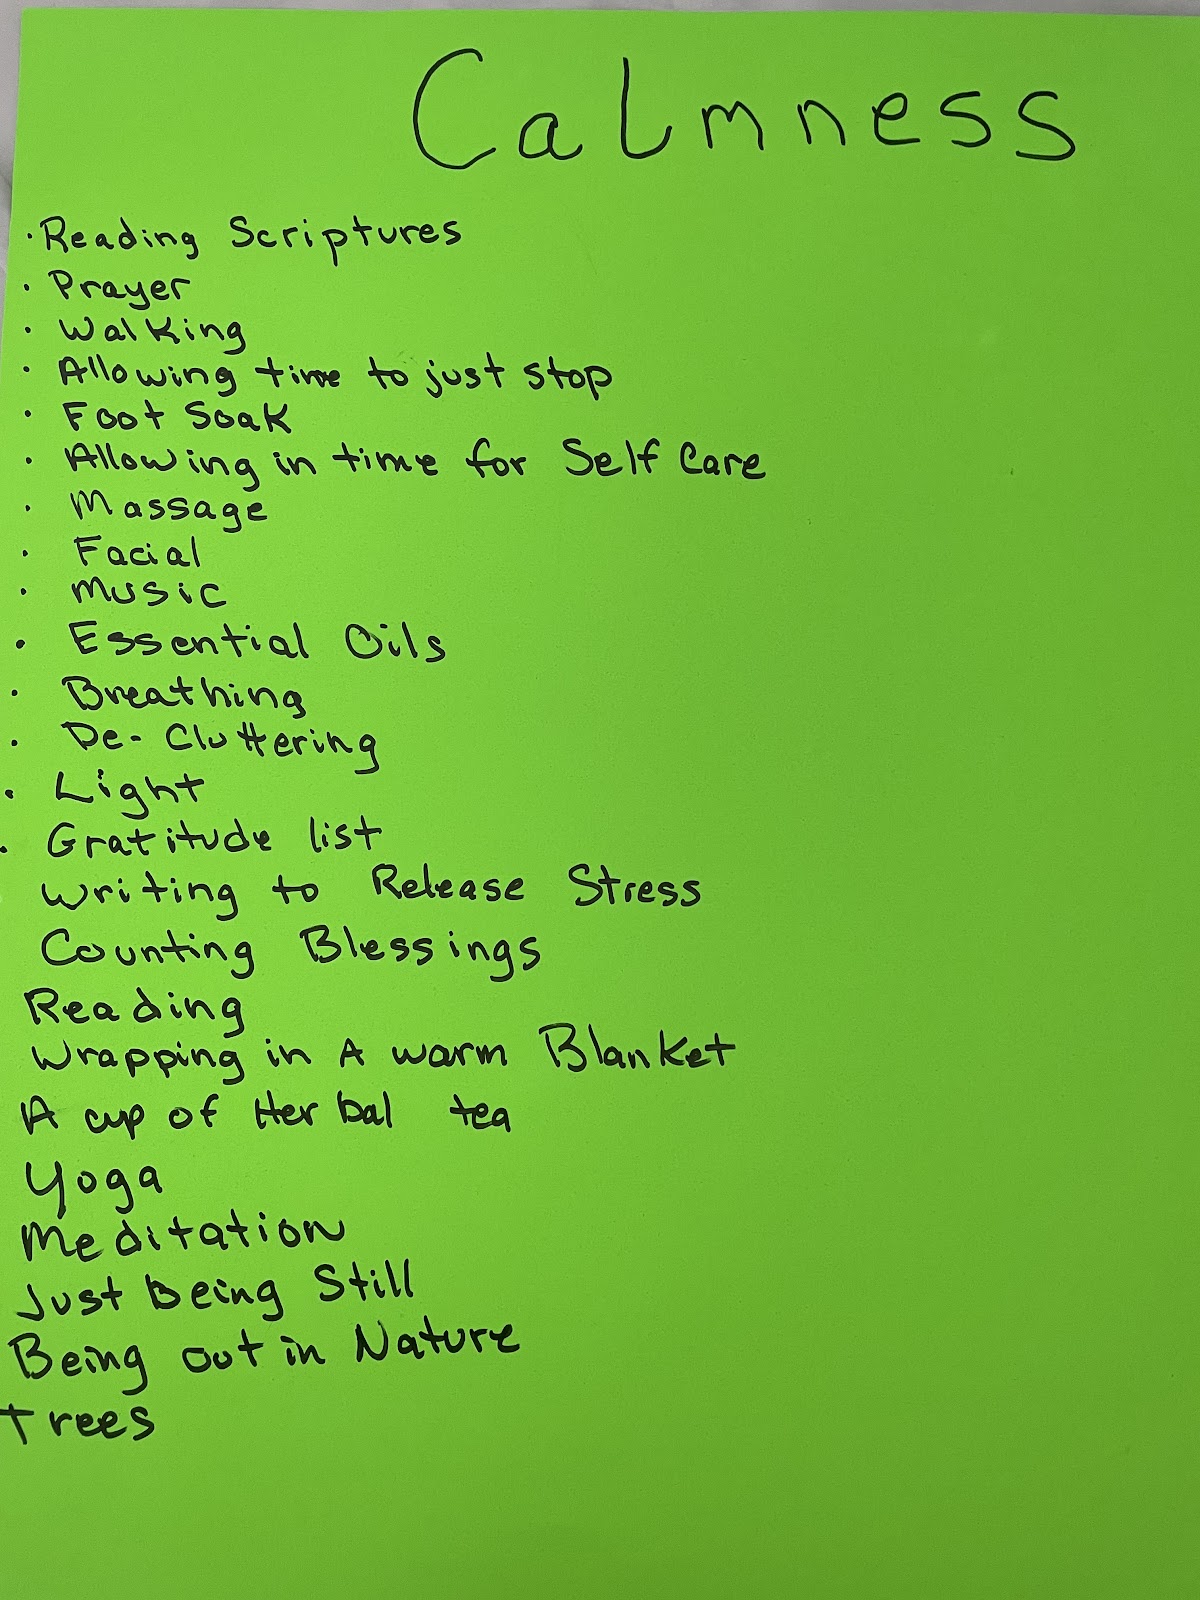 Calmness
· Reading Scriptures
· Prayer
· Walking
· Allowing time to just stop
· Foot Soak
· Allowing in time for Self Care
· Massage
· Facial
· Music
· Essential Oils
· Breathing
· De-Cluttering
· Light
· Gratitude list
Writing to Release Stress
Counting Blessings
Reading
Wrapping in A warm Blanket
A cup of Herbal tea
Yoga
Meditation
Just being Still
Being out in Nature
Trees